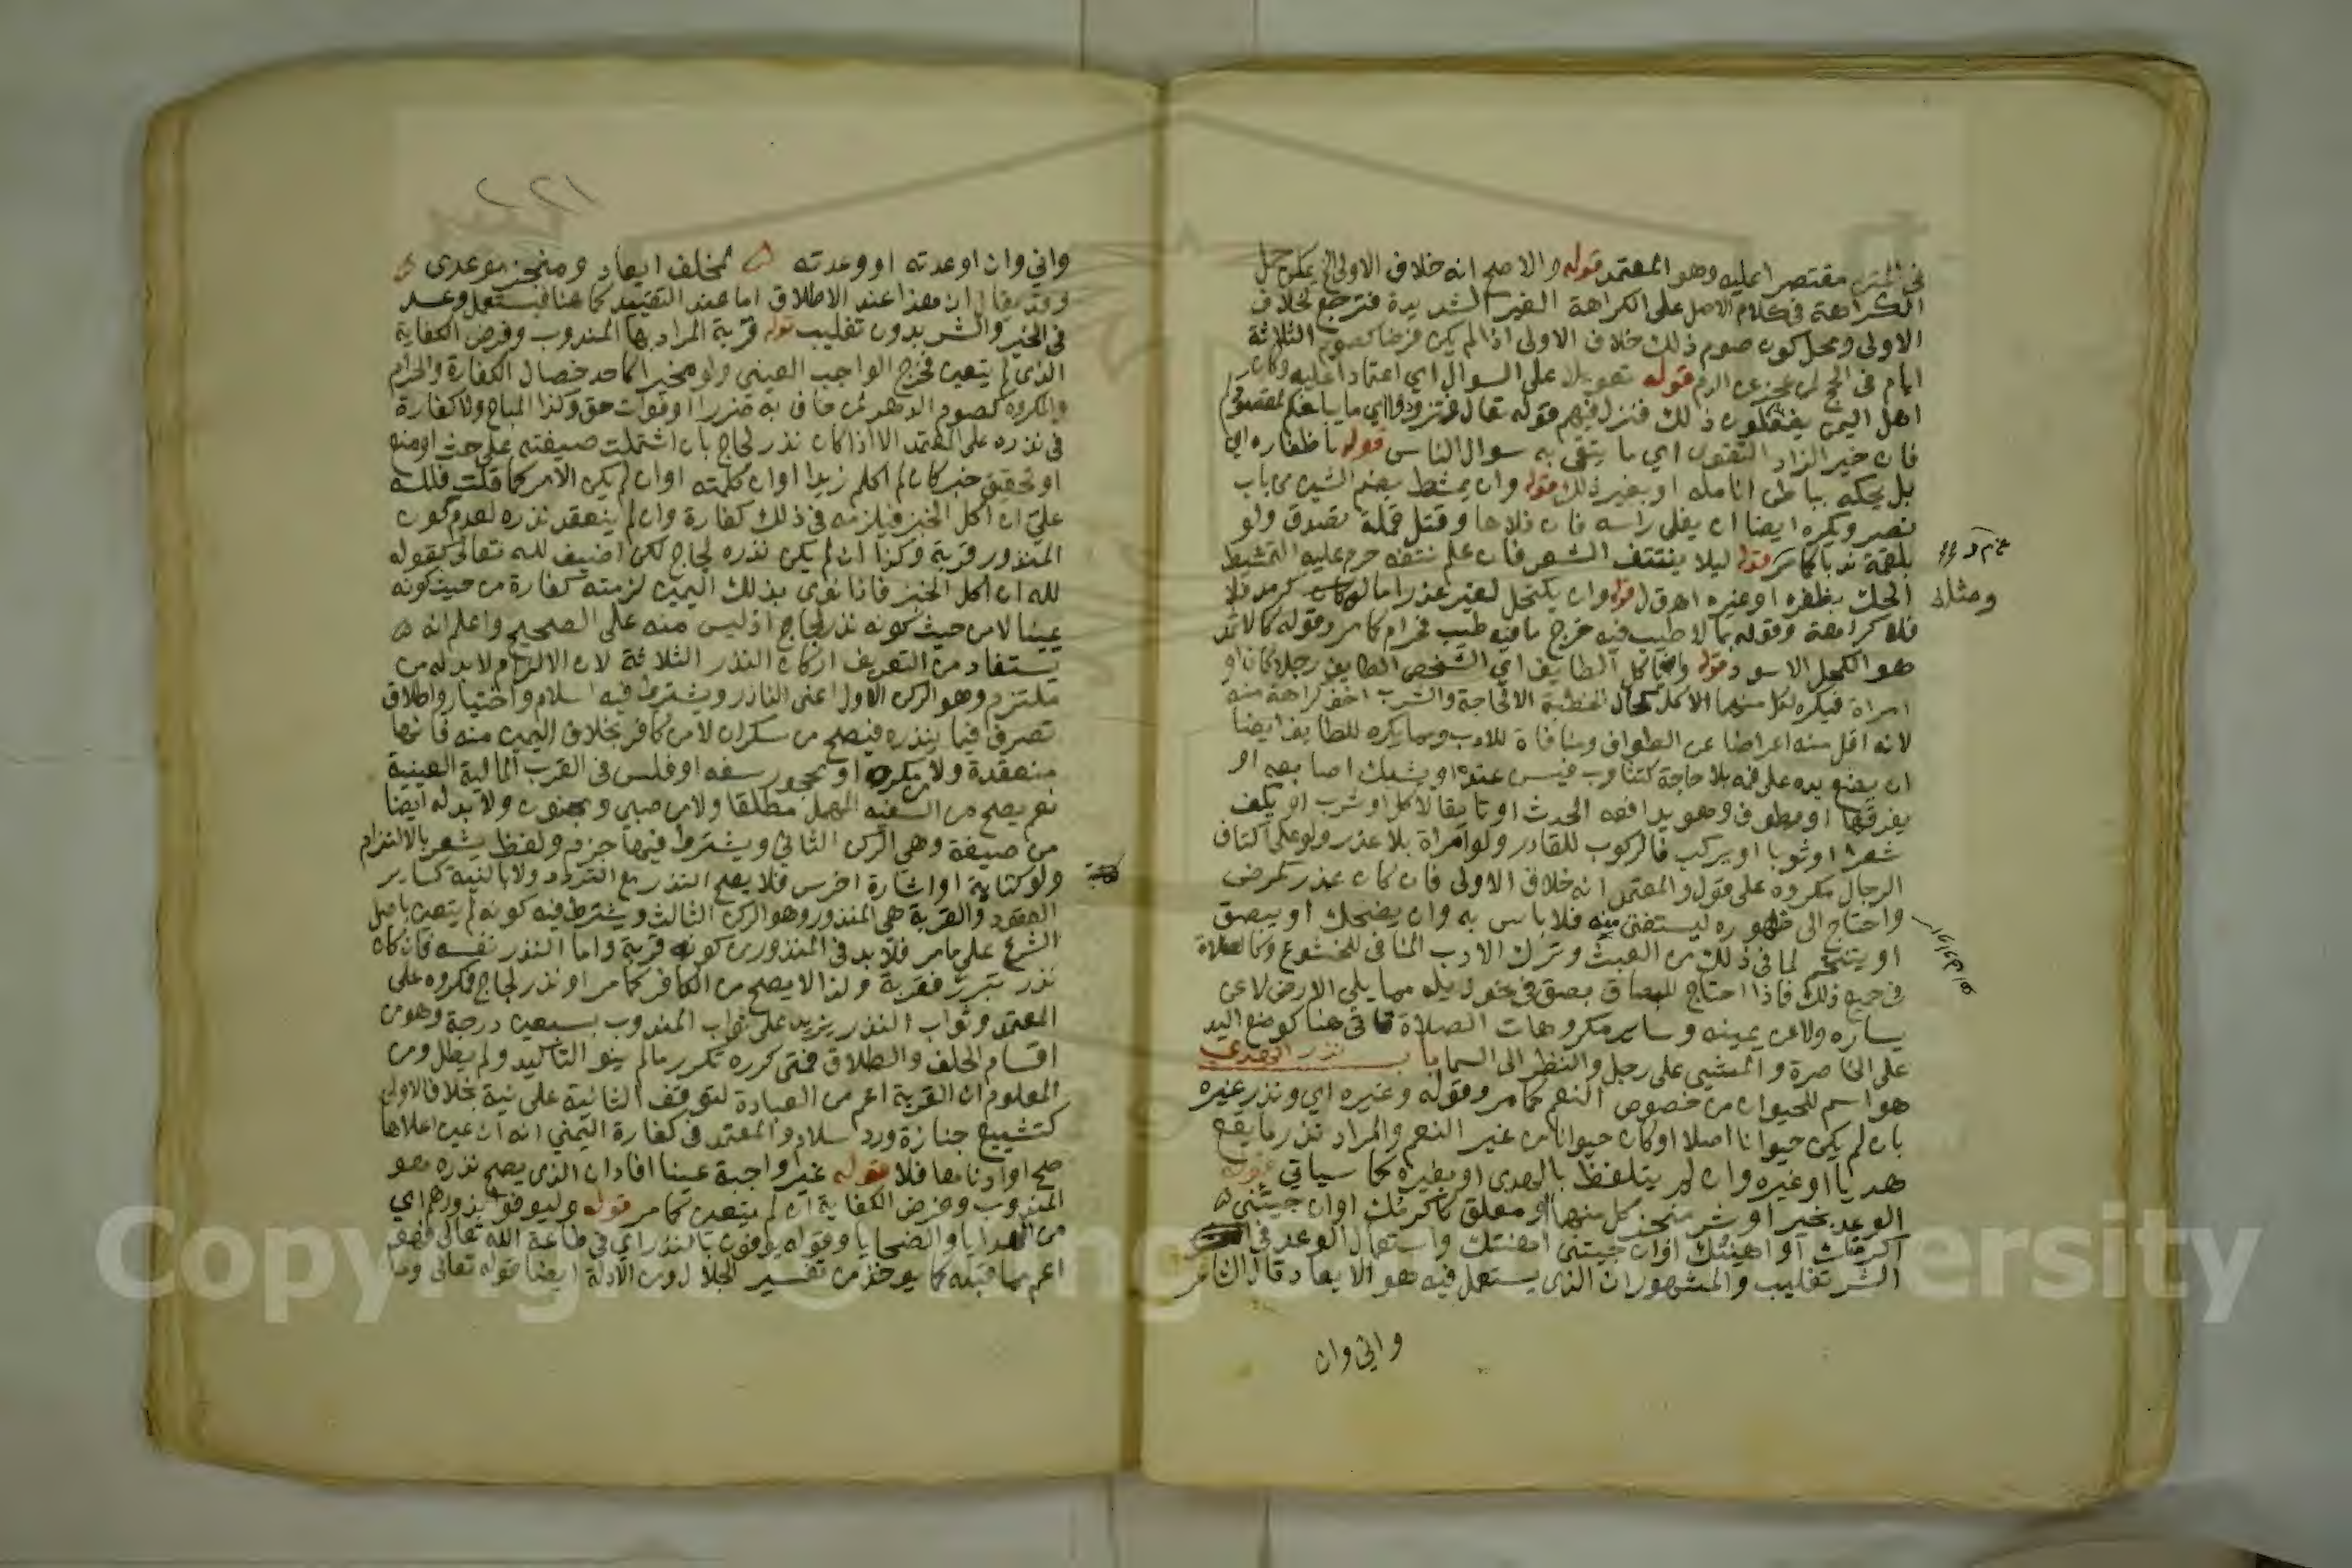 في المتن مقتصرا عليه وهو المعتمد قوله والاصح انه خلاف الاولى الخ يمكن حمل
الكراهة في كلام الاصل على الكراهة الغير الشديدة فترجع لخلاف
الاولى ومحل كون صوم ذلك خلاف الاولى اذا لم يكن فرضا كصوم الثلاثة
ايام في الحج لمن عجز عن الدم قوله تعويلا على السوال اي اعتمادا عليه وكان
اهل اليمن يفعلون ذلك فنزل فيهم قوله تعالى وتزودوا اي ما يبلغكم لمقصودكم
فان خير الزاد التقوى اي ما يتقى به سوال الناس قوله باظفاره اي
بل يحكه بباطن انامله او بغير ذلك قوله وان يمشط بضم الشين من باب
نصر ويكره ايضا ان يفلى راسه فان فلاها وقتل قملة تصدق ولو
بلقمة ندبا كما مر قوله ليلا ينتتف الشعر فان علم نتفه حرم عليه التمشط
ومثله
الحك بظفره او غيره اهـ ق ل قوله وان يكتحل لغير عذر اما لو كان كرمد فلا
فلا كراهة وقوله بما لا طيب فيه خرج ما فيه طيب فحرام كما مر وقوله كالاثمد
هو الكحل الاسود قوله وانما كل الطايف اي الشخص الطايف رجلا كان او
امراة فيكره لكل منهما الاكل كحال الخطبة الا لحاجة والشرب اخف كراهة منه
لانه اقل منه اعراضا عن الطواف ومنافاة للادب ومما يكره للطايف ايضا
ان يضع يده على فمه بلا حاجة كتثاوب فيسن عنده او يشبك اصابعه او
يفرقعها او يطوف وهو يدافعه الحدث او تايقا لاكل او شرب او يكف
شعرا او ثوبا او يركب فالركوب للقادر ولو امراة بلا عذر ولو على اكتاف
الرجال مكروه على قول والمعتمد انه خلاف الاولى فان كان عذر كمرض
واحتاج الى ظهوره ليستفتى منه فلا باس به وان يضحك او يبصق
او يتنخم لما في ذلك من العبث وترك الادب المنافي للخشوع وكالصلاة
في جميع ذلك فاذا احتاج للبصاق بصق في نحو ذيله مما يلي الارض لا عن
يساره ولا عن يمينه وساير مكروهات الصلاة تاتي هنا كوضع اليد
على الخاصرة والمشي على رجل والنظر الى السما باب نذر الهدي
هو اسم للحيوان من خصوص النعم كما مر وقوله وغيره اي ونذر غيره
بان لم يكن حيوانا اصلا او كان حيوانا من غير النعم والمراد نذر ما يقع
هديا او غيره وان لم يتلفظ بالهدى او بغيره كما سياتي قوله
الوعد بخير او شر منجز كل منهما او معلق كاكرمك او ان جيتني
اكرمتك او اهينك او ان جيتني اهنتك واستعمال الوعد في
الشر تغليب والمشهور ان الذي يستعمل فيه هو الايعاد قال الشاعر
واني وان
واني وان اوعدته او وعدته لمخلف ايعادي ومنجز موعدى
وقد يقال ان هذا عند الاطلاق اما عند التقييد كما هنا فيستعمل وعد
في الخير والشر بدون تغليب قوله قربة المراد بها المندوب وفرض الكفاية
الذي لم يتعين فخرج الواجب العيني ولو مخيرا كاحد خصال الكفارة والحرام
والمكروه كصوم الدهر لمن خاف به ضررا او فوات حق وكذا المباح ولا كفارة
في نذره على المعتمد الا اذا كان نذر لجاج بان اشتملت صيغته على حث او منع
او تحقيق خبر كان لم اكلم زيدا او ان كلمته او ان لم يكن الامر كما قلت فلله
علي ان اكل الخبز فيلزمه في ذلك كفارة وان لم ينعقد نذره لعدم كون
المنذور قربة وكذا ان لم يكن نذره لجاج لكن اضيف لله تعالى كقوله
لله ان اكل الخبز فاذا نوى بذلك اليمين لزمته كفارة من حيث كونه
يمينا لا من حيث كونه نذر لجاج اذ ليس منه على الصحيح واعلم انه
يستفاد من التعريف اركان النذر الثلاثة لان الالزام لا بد له من
ملتزم وهو الركن الاول اعني الناذر ويشترط فيه اسلام واختيار واطلاق
تصرف فيما ينذره فيصح من سكران لا من كافر بخلاف اليمين منه فانها
منعقدة ولا مكره او محجور سفه او فلس في القرب المالية العينية
نعم يصح من السفيه المهمل مطلقا ولا من صبي ومجنون ولا بد له ايضا
من صيغة وهي الركن الثاني ويشترط فيها جزم ولفظ يشعر بالالتزام
ولو كتابة او اشارة اخرس فلا يصح النذر مع التردد ولا بالنية كساير
العقود والقربة هي المنذور وهو الركن الثالث ويشترط فيه كونه لم يتعين باصل
الشرع على ما مر فلا بد في المنذور من كونه قربة واما النذر نفسه فان كان
نذر تبرر فقربة ولذا لا يصح من الكافر كما مر او نذر لجاج فكروه على
المعتمد وثواب النذر يزيد على ثواب المندوب بسبعين درجة وهو من
اقسام الحلف والطلاق فمتى كرره تكرر ما لم ينو التاكيد ولم يطل ومن
المعلوم ان القربة اعم من العبادة لتوقف الثانية على نية بخلاف الاولى
كتشييع جنازة ورد سلام والمعتمد في كفارة اليمين انه ان عين اعلاها
صح او ادناها فلا قوله غير واجبة عينا افاد ان الذي يصح نذره هو
المندوب وفرض الكفاية ان لم يتعين كما مر قوله وليوفوا نذورهم اي
من الهدايا والضحايا وقوله يوفون بالنذر اي في طاعة الله تعالى فهو
اعم مما قبله كما يوخذ من تفسير الجلال ومن الادلة ايضا قوله تعالى وما
Copyright © King University